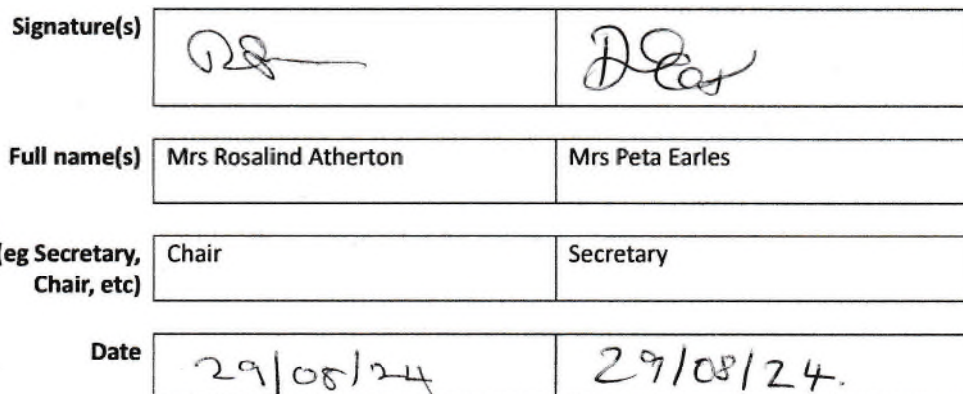 Signature(s)
Full name(s) Mrs Rosalind Atherton Mrs Peta Earles
(eg Secretary, Chair Secretary
Chair, etc)
Date 29/08/24 29/08/24.